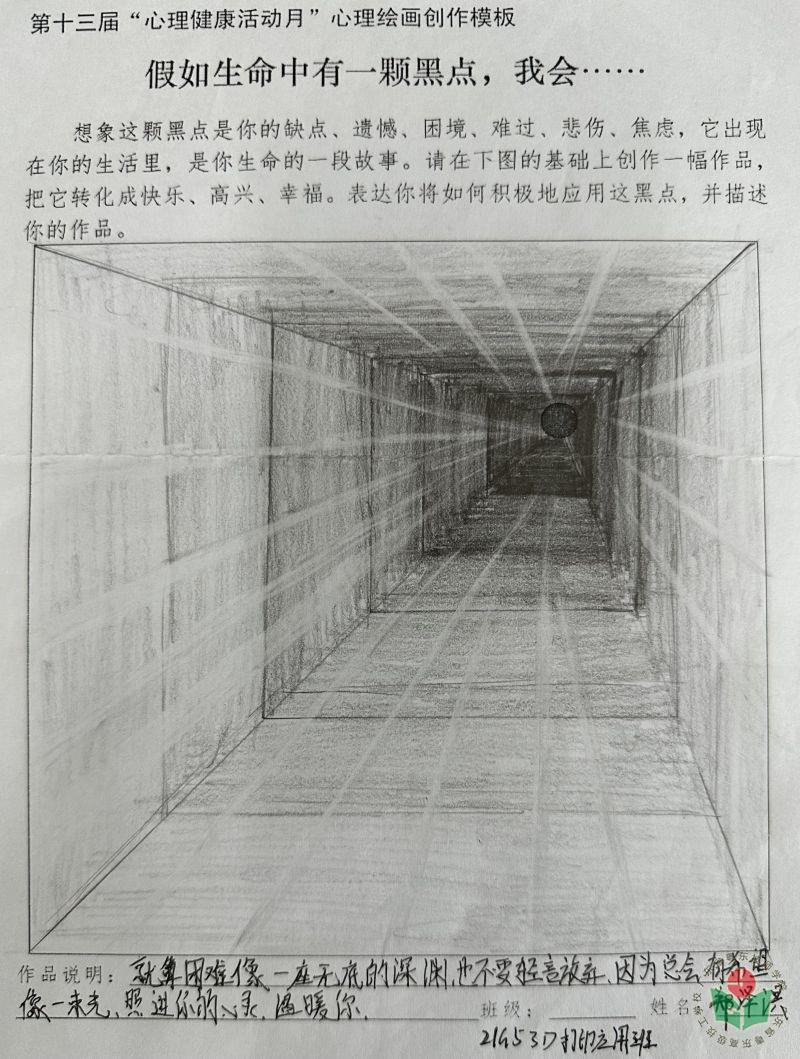 第十三届“心理健康活动月”心理绘画创作模板
假如生命中有一颗黑点，我会……
想象这颗黑点是你的缺点、遗憾、困境、难过、悲伤、焦虑，它出现
在你的生活里，是你生命的一段故事。请在下图的基础上创作一幅作品，
把它转化成快乐、高兴、幸福。表达你将如何积极地应用这黑点，并描述
你的作品。
作品说明：就算困难像一座无底的深渊，也不要轻言放弃，因为总会有
像一束光、照进你的心灵，温暖你.
班级： 姓名
21G53D打印应用班